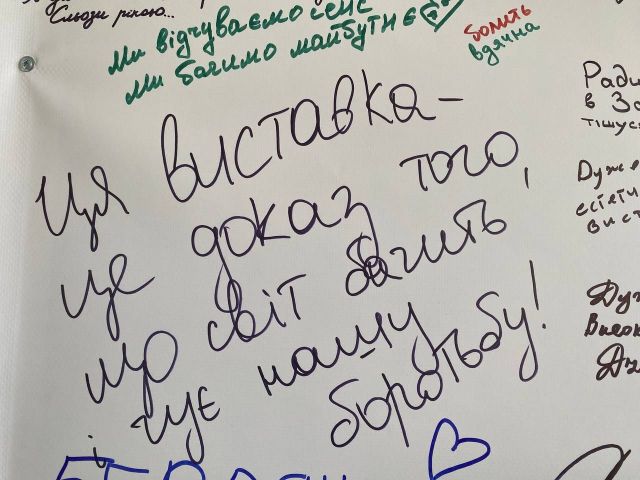 Сльози рікою...
Ми відчуваємо сенс
Ми бачимо майбутнє
болить
вдячна
Ця виставка –
це доказ того,
що світ бачить
і чує нашу
боротьбу!
Ради
в За
тішус
Дуже
естети
вист
Дуж
Високо